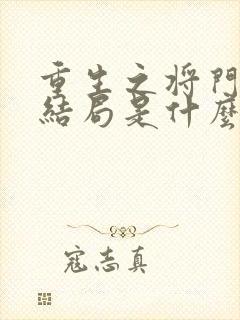 重生之将門
結局是什麼
寇志真